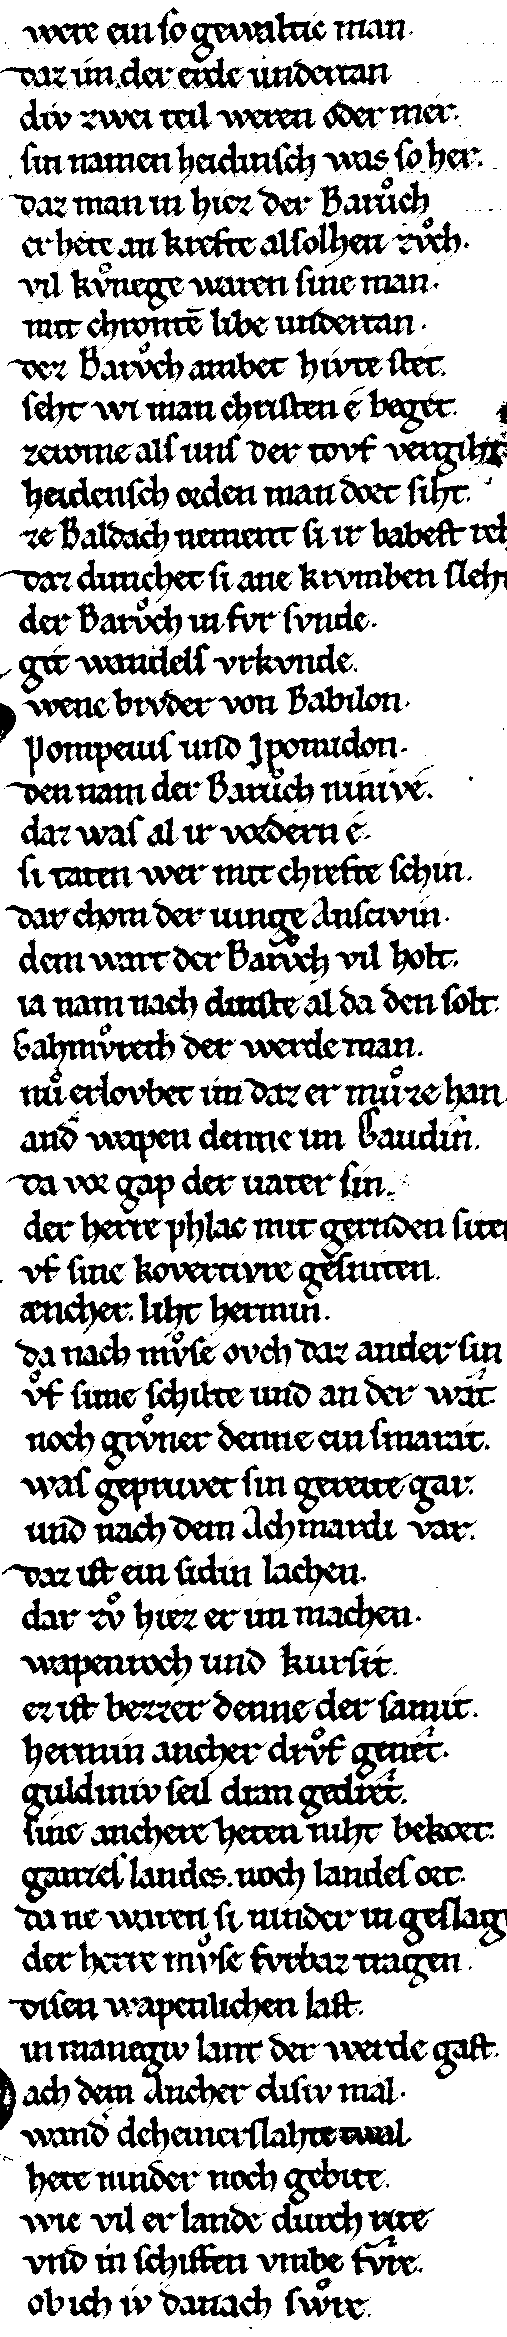 were ein so gewaltic man.
daz im der erde undertan
div zwei teil weren oder mer.
sin namen heidinsch was so her.
daz man in hiez der Baruͦch
er hete an krefte alsolhen zuͦch.
vil kuͦnege waren sine man.
mit chrontē libe undertan.
der Baruͦch ambet hivte stet.
seht wi man christen é beget.
zerome als uns der touf vergiht
heidensch orden man dort siht.
ze Baldach nement si ir babest reh
daz dunchet si ane krumben sleht
der Baruͦch in fur sunde.
git wandels urkunde.
wene bruder von Babilon.
Pompeius und Jpomidon.
den nam der Baruͦch ninive.
daz was al ir vordern é.
si taten wer mit chrefte schin.
dar chom der iunge Anscivin.
dem wart der Baruͦch vil holt.
ia nam nach dinste al da den solt.
Gahmuͦreth der werde man.
nuͦ erlovbet im daz er muͦze han
and̄ wapen denne im Gaudin̄.
da vor gap der vater sin.
der herre phlac mit gernden siten
vf sine kovertivre gesniten.
ancher. liht hermin.
da nach muͦse ovch daz ander sin
uͦf sime schilte und an der wāt.
noch gruͦner denne ein smarat.
was gepruvet sin gereite gar.
und nach dem Achmardi var.
daz ist ein sidin lachen.
dar zuͦ hiez er im machen.
wapenroch und kursit.
ez ist bezzer denne der samit.
hermin ancher druͦf genet.
guldiniv seil dran gedret.
sine anchere heten niht bekort.
ganzes landes. noch landes ort.
da ne waren si ninder in geslagn
der herre muͦse furbaz tragen.
disen wapenlichen last.
in manegiv lant der werde gast.
ach dem Ancher disiv mal.
wand̄ deheinerslahte twal
hete ninder noch gebite.
wie vil er lande durch rite
vnd in schiffen vmbe fuͦre.
ob ich iv danach swuͦre.